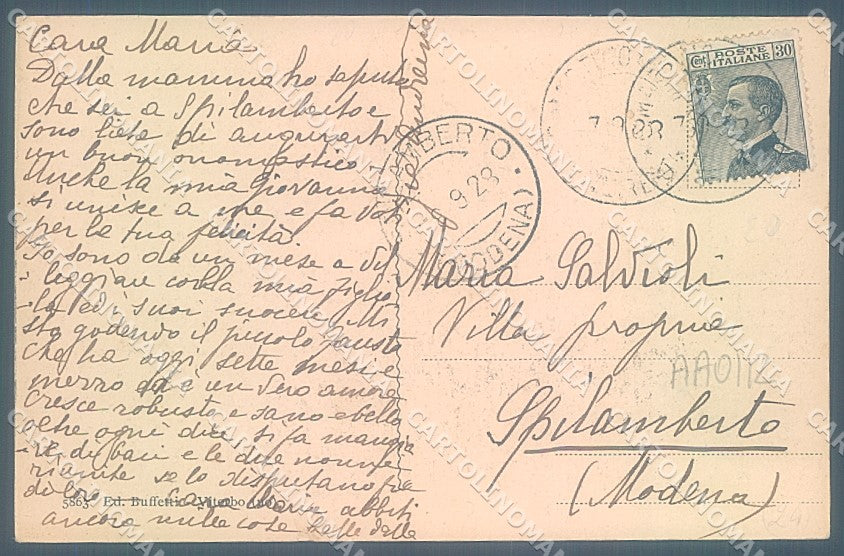 Cara Maria
Dalla mamma ho saputo
che sei a Spilamberto e
sono lieta di augurarti
un buon onomastico
Anche la mia Giovanna
si unisce a me e fa voti
per la tua felicità.
Io sono da un mese a Vil
- leggiare colla mia figlio
la ed i suoi suoceri. Mi
sto godendo il piccolo Fausto
che ha oggi sette mesi e
mezzo ed è un vero amore
cresce robusto e sano e bello
che ogni dì si fa mangia
- re di baci e le due nonne
se lo disputano fra
di loro. Cara Maria abbiti
ancora mille cose belle dalla
5863 Ed. Buffetti - Viterbo
POSTE ITALIANE
Cent. 30
SPILAMBERTO
9.28
(MODENA)
Maria Salvioli
Villa propria
Spilamberto
(Modena)
AA0112
(24)
CARTOLINOMANIA